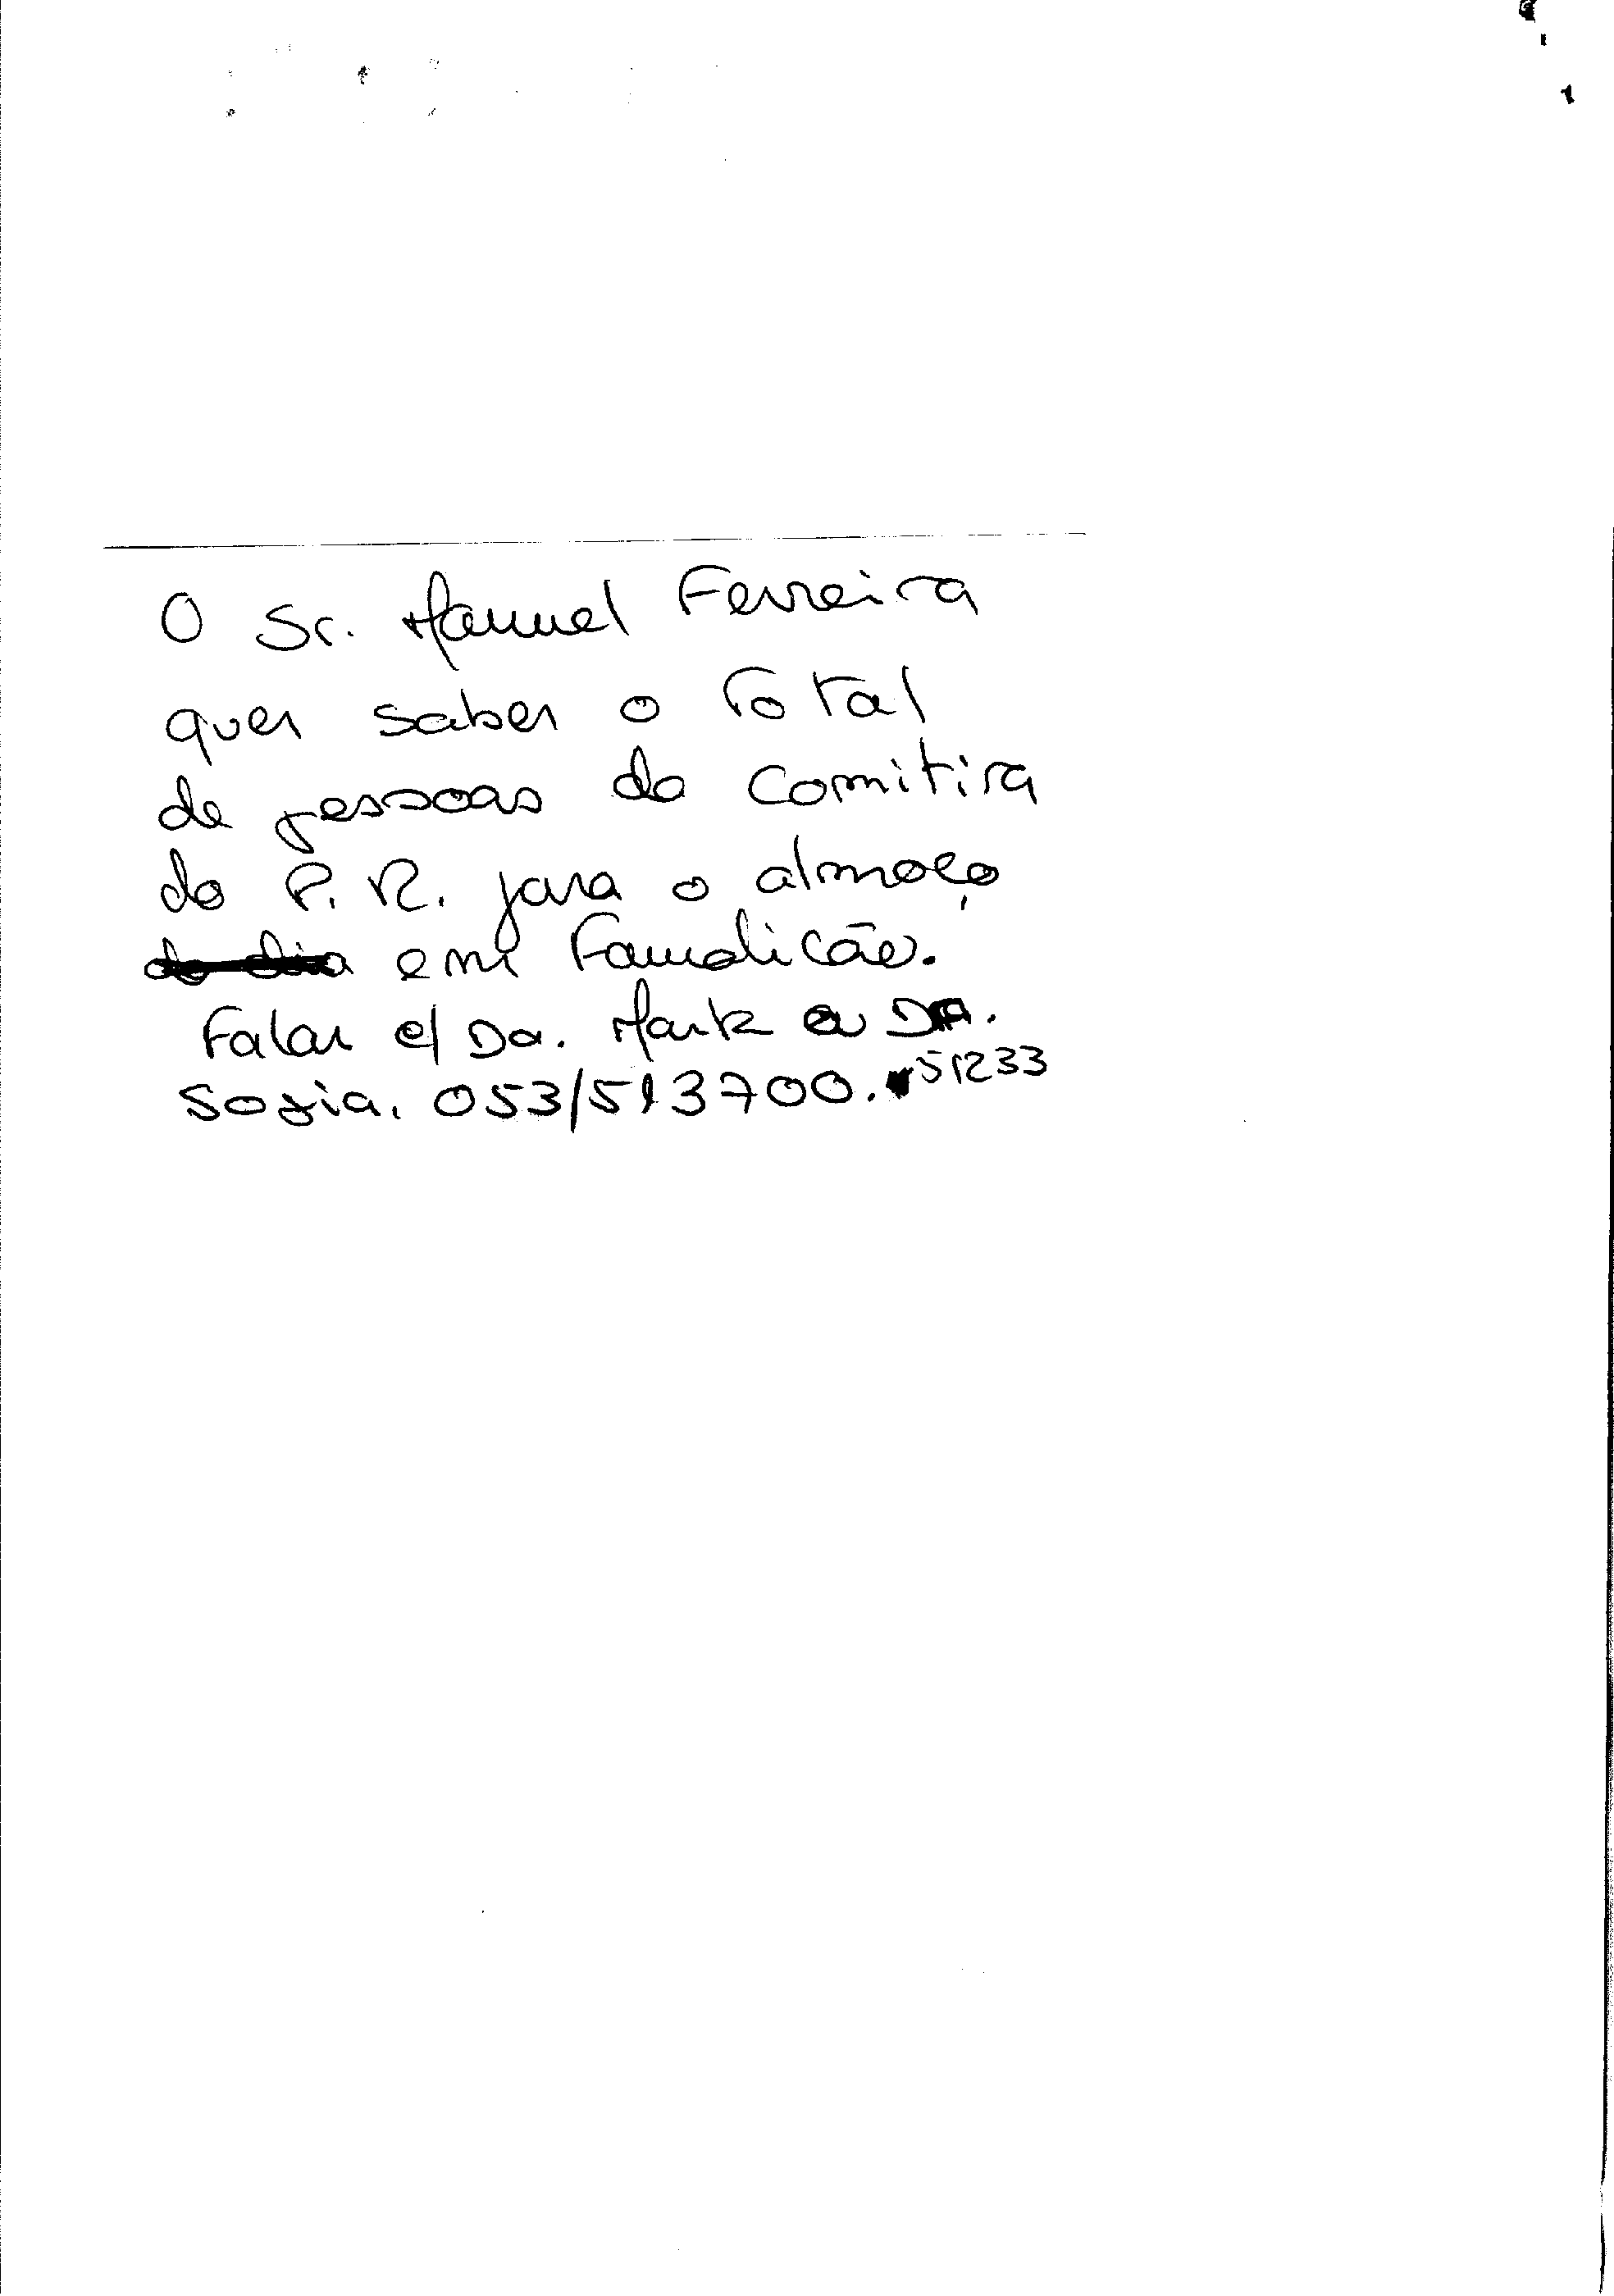 O Sr. Manuel Ferreira
quer saber o total
de pessoas da comitiva
do P.R. para o almoço
do dia em Famalicão.
Falar c/ Da. ou Da.
Sofia. 053/513700. 51233